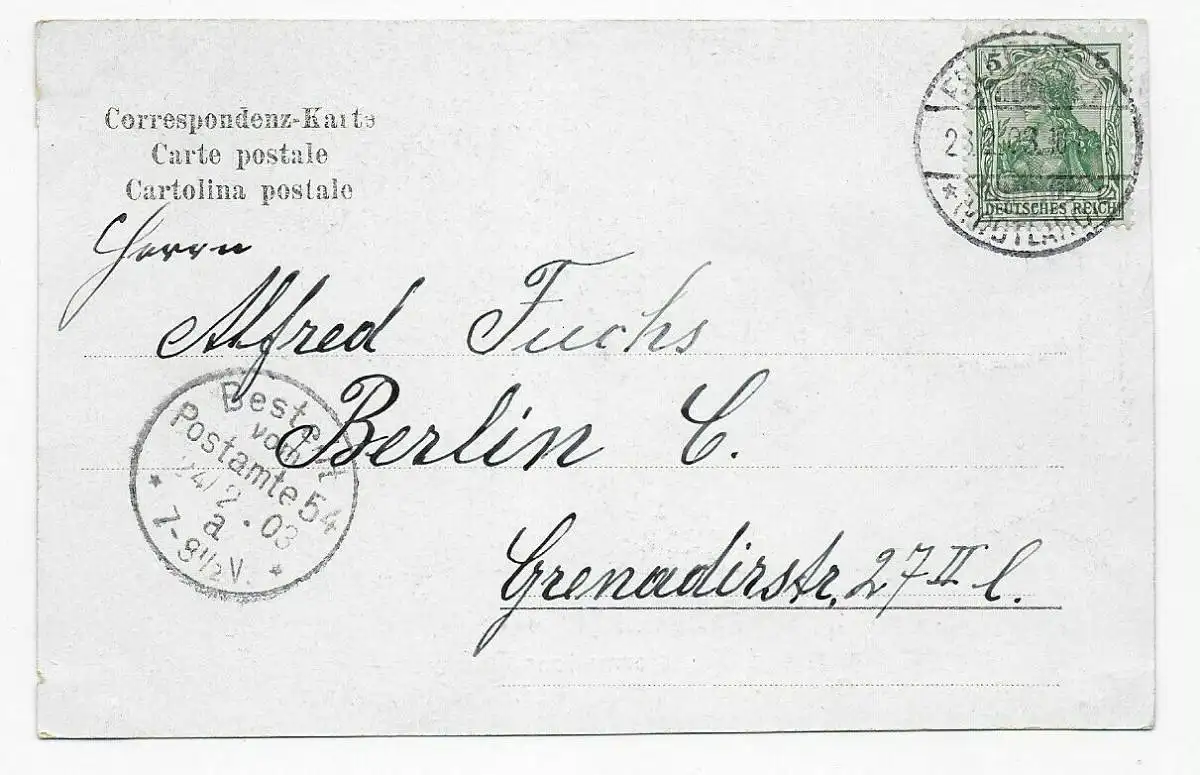 Correspondenz-Karte
Carte postale
Cartolina postale
5 5
DEUTSCHES REICH
Herrn
Alfred Fuchs
Berlin C.
Grenadirstr. 27 II l.
Bestellt
vom
Postamte 54
24/2.03
a
* 7-8½V. *